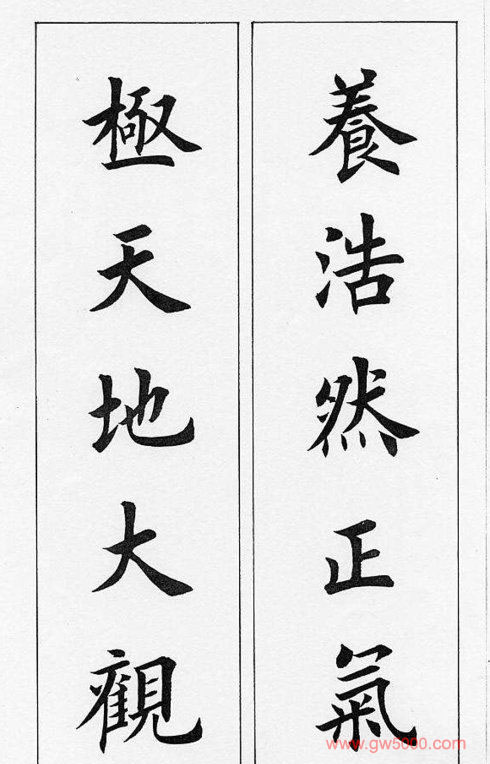 養浩然正氣
極天地大觀
www.gw5000.com